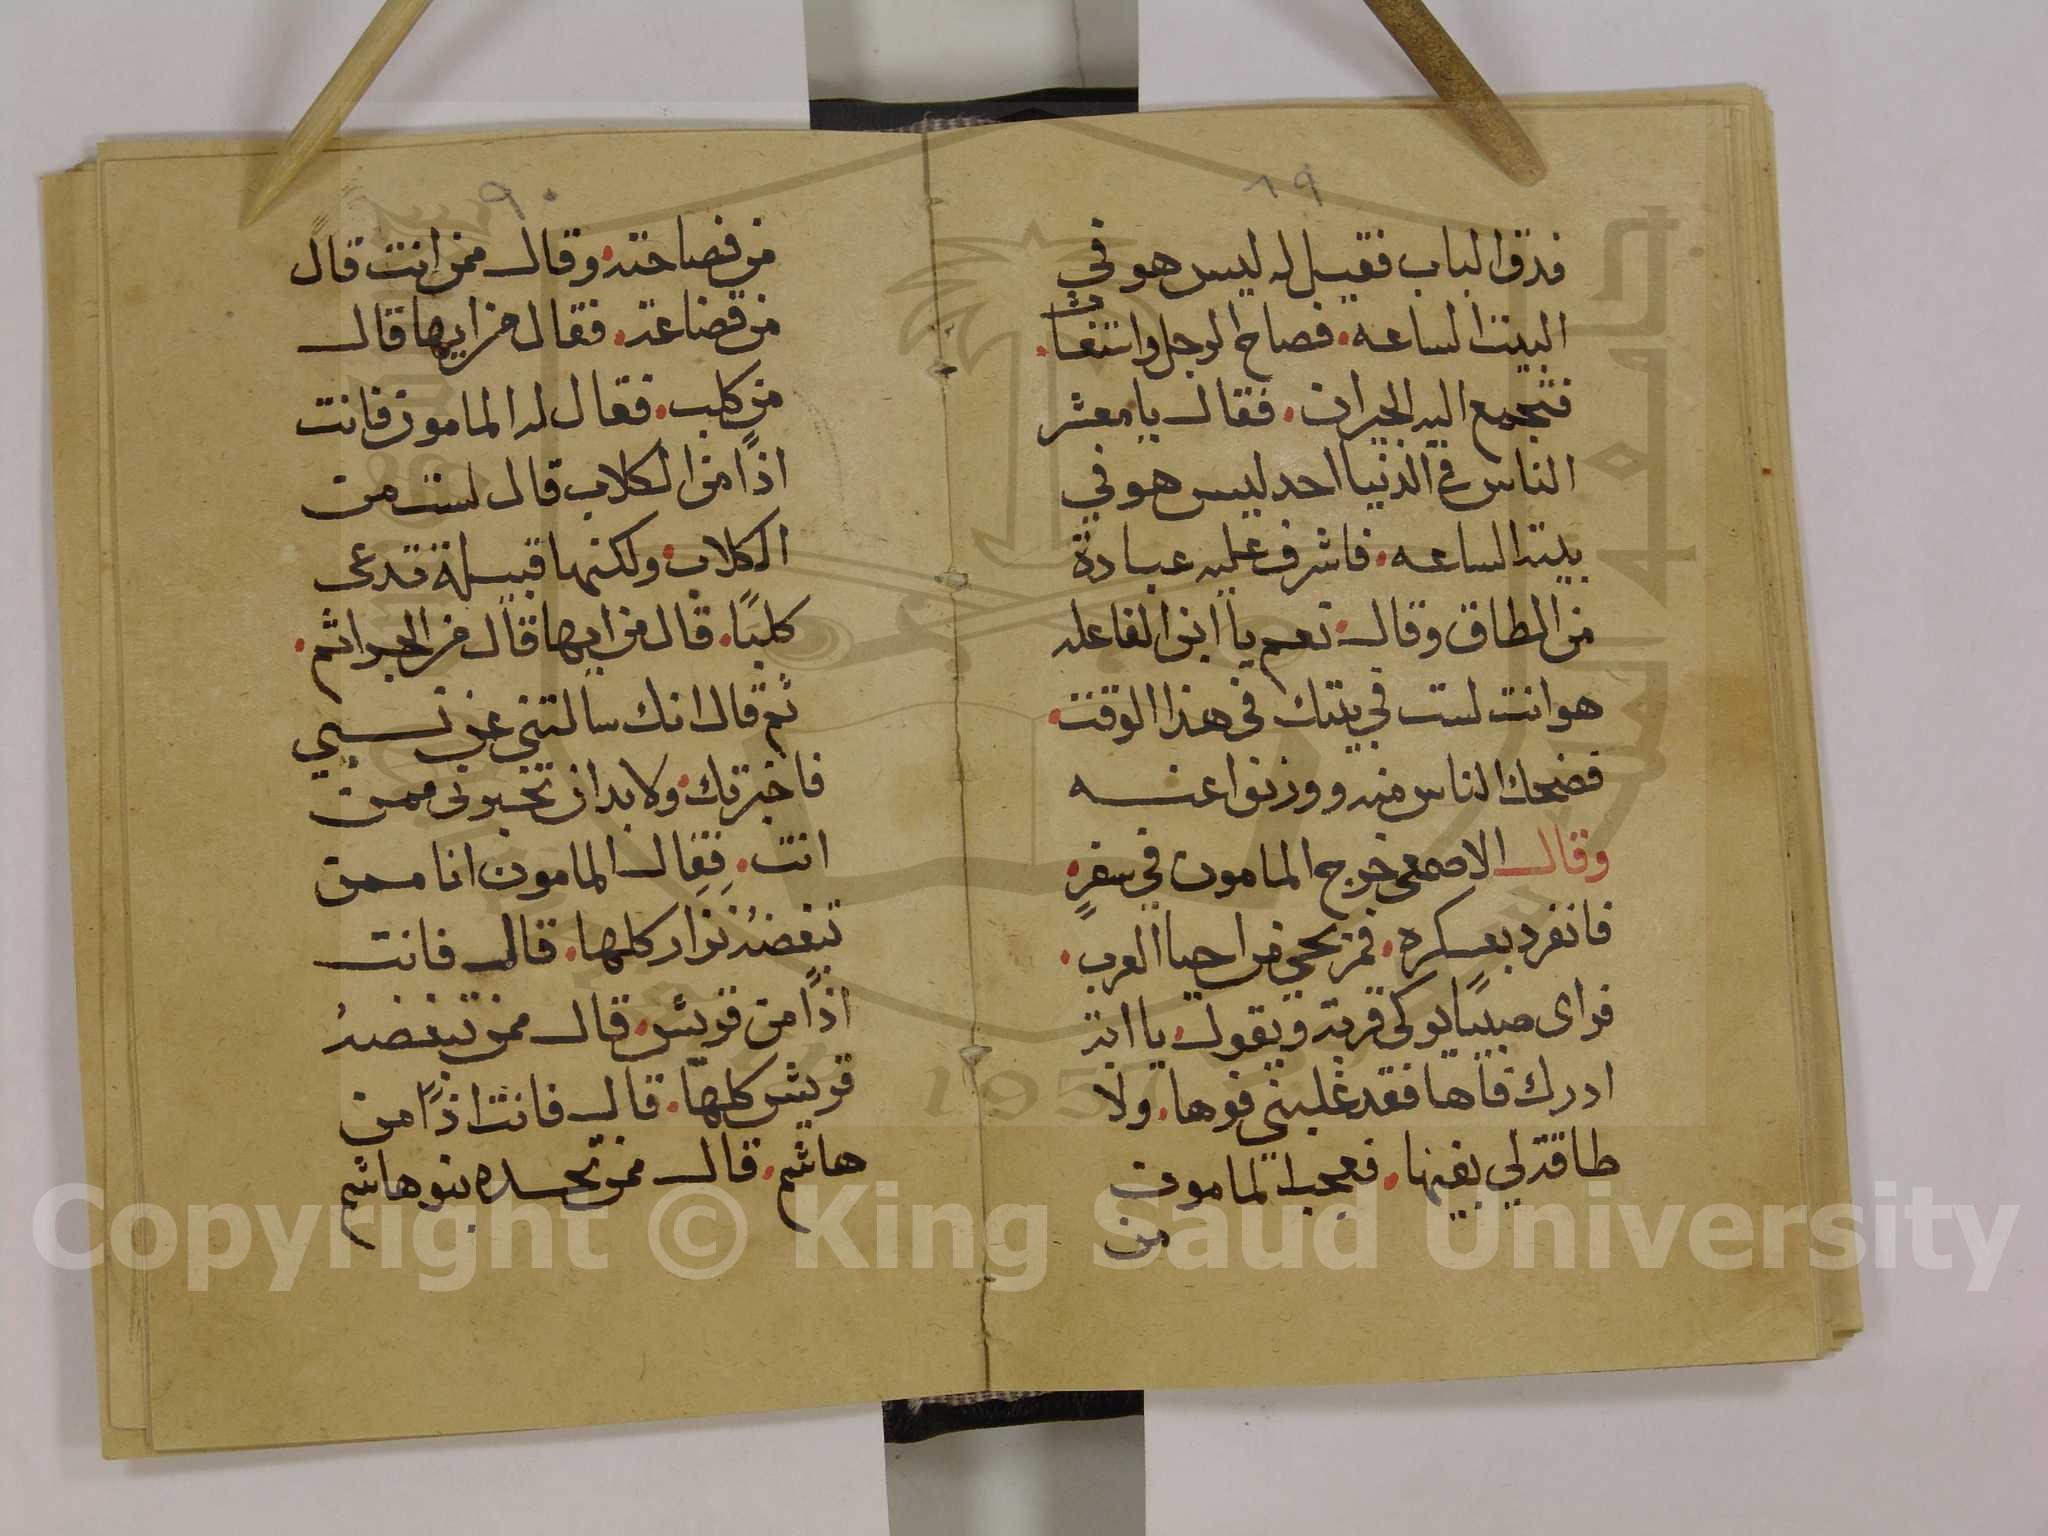 ٨٩
فدق الباب فقيل له ليس هو في
البيت الساعه. فصاح الرجل واستغاث.
فتجمع اليه الجيران. فقال يا معشر
الناس في الدنيا احد ليس هو في
بيته الساعه. فاشرف عليه عبادة
من الطاق وقال. نعم يا ابن الفاعله
هو انت لست في بيتك في هذا الوقت.
فضحك الناس منه ووزنوا عنه
وقال الاصمعي خرج المامون في سفرٍ.
فانفرد بعسكره. فمر بحي من احيا العرب.
فراى صبيًا يوكي قربة ويقول. يا ابة
ادرك فاها فقد غلبني فوها. ولا
طاقة لي بفيها. فعجب المامون
من
٩٠
من فصاحته. وقال ممن انت قال
من قضاعة. فقال من ايها قال
من كلب. فقال له المامون فانت
اذًا من الكلاب قال لست من
الكلاب. ولكنها قبيلة تدعى
كلبًا. قال من ايها قال من الجراثم.
ثم قال انك سالتني عن نسبي
فاخبرتك. ولا بد ان تخبرني ممن
انت. فقال المامون انا ممن
تبغضهُ نزار كلها. قال فانت
اذًا من قريش. قال ممن تبغضهُ
قريش كلها. قال فانت اذًا من
هاشم. قال ممن تحسده بنو هاشم
Copyright © King Saud University
1957